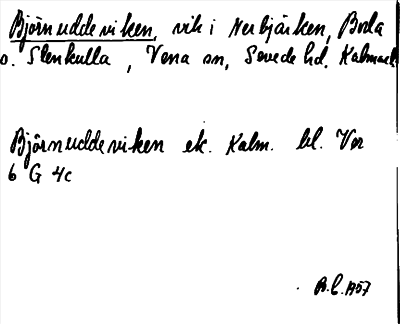 Björnuddeviken, vik i Nerbjärken, Boda
o. Slenkulla, Vena sn, Sevede hd. Kalmar l.
Björnuddeviken ek. Kalm. bl. Ver
6 G 4c
B.L. 1907